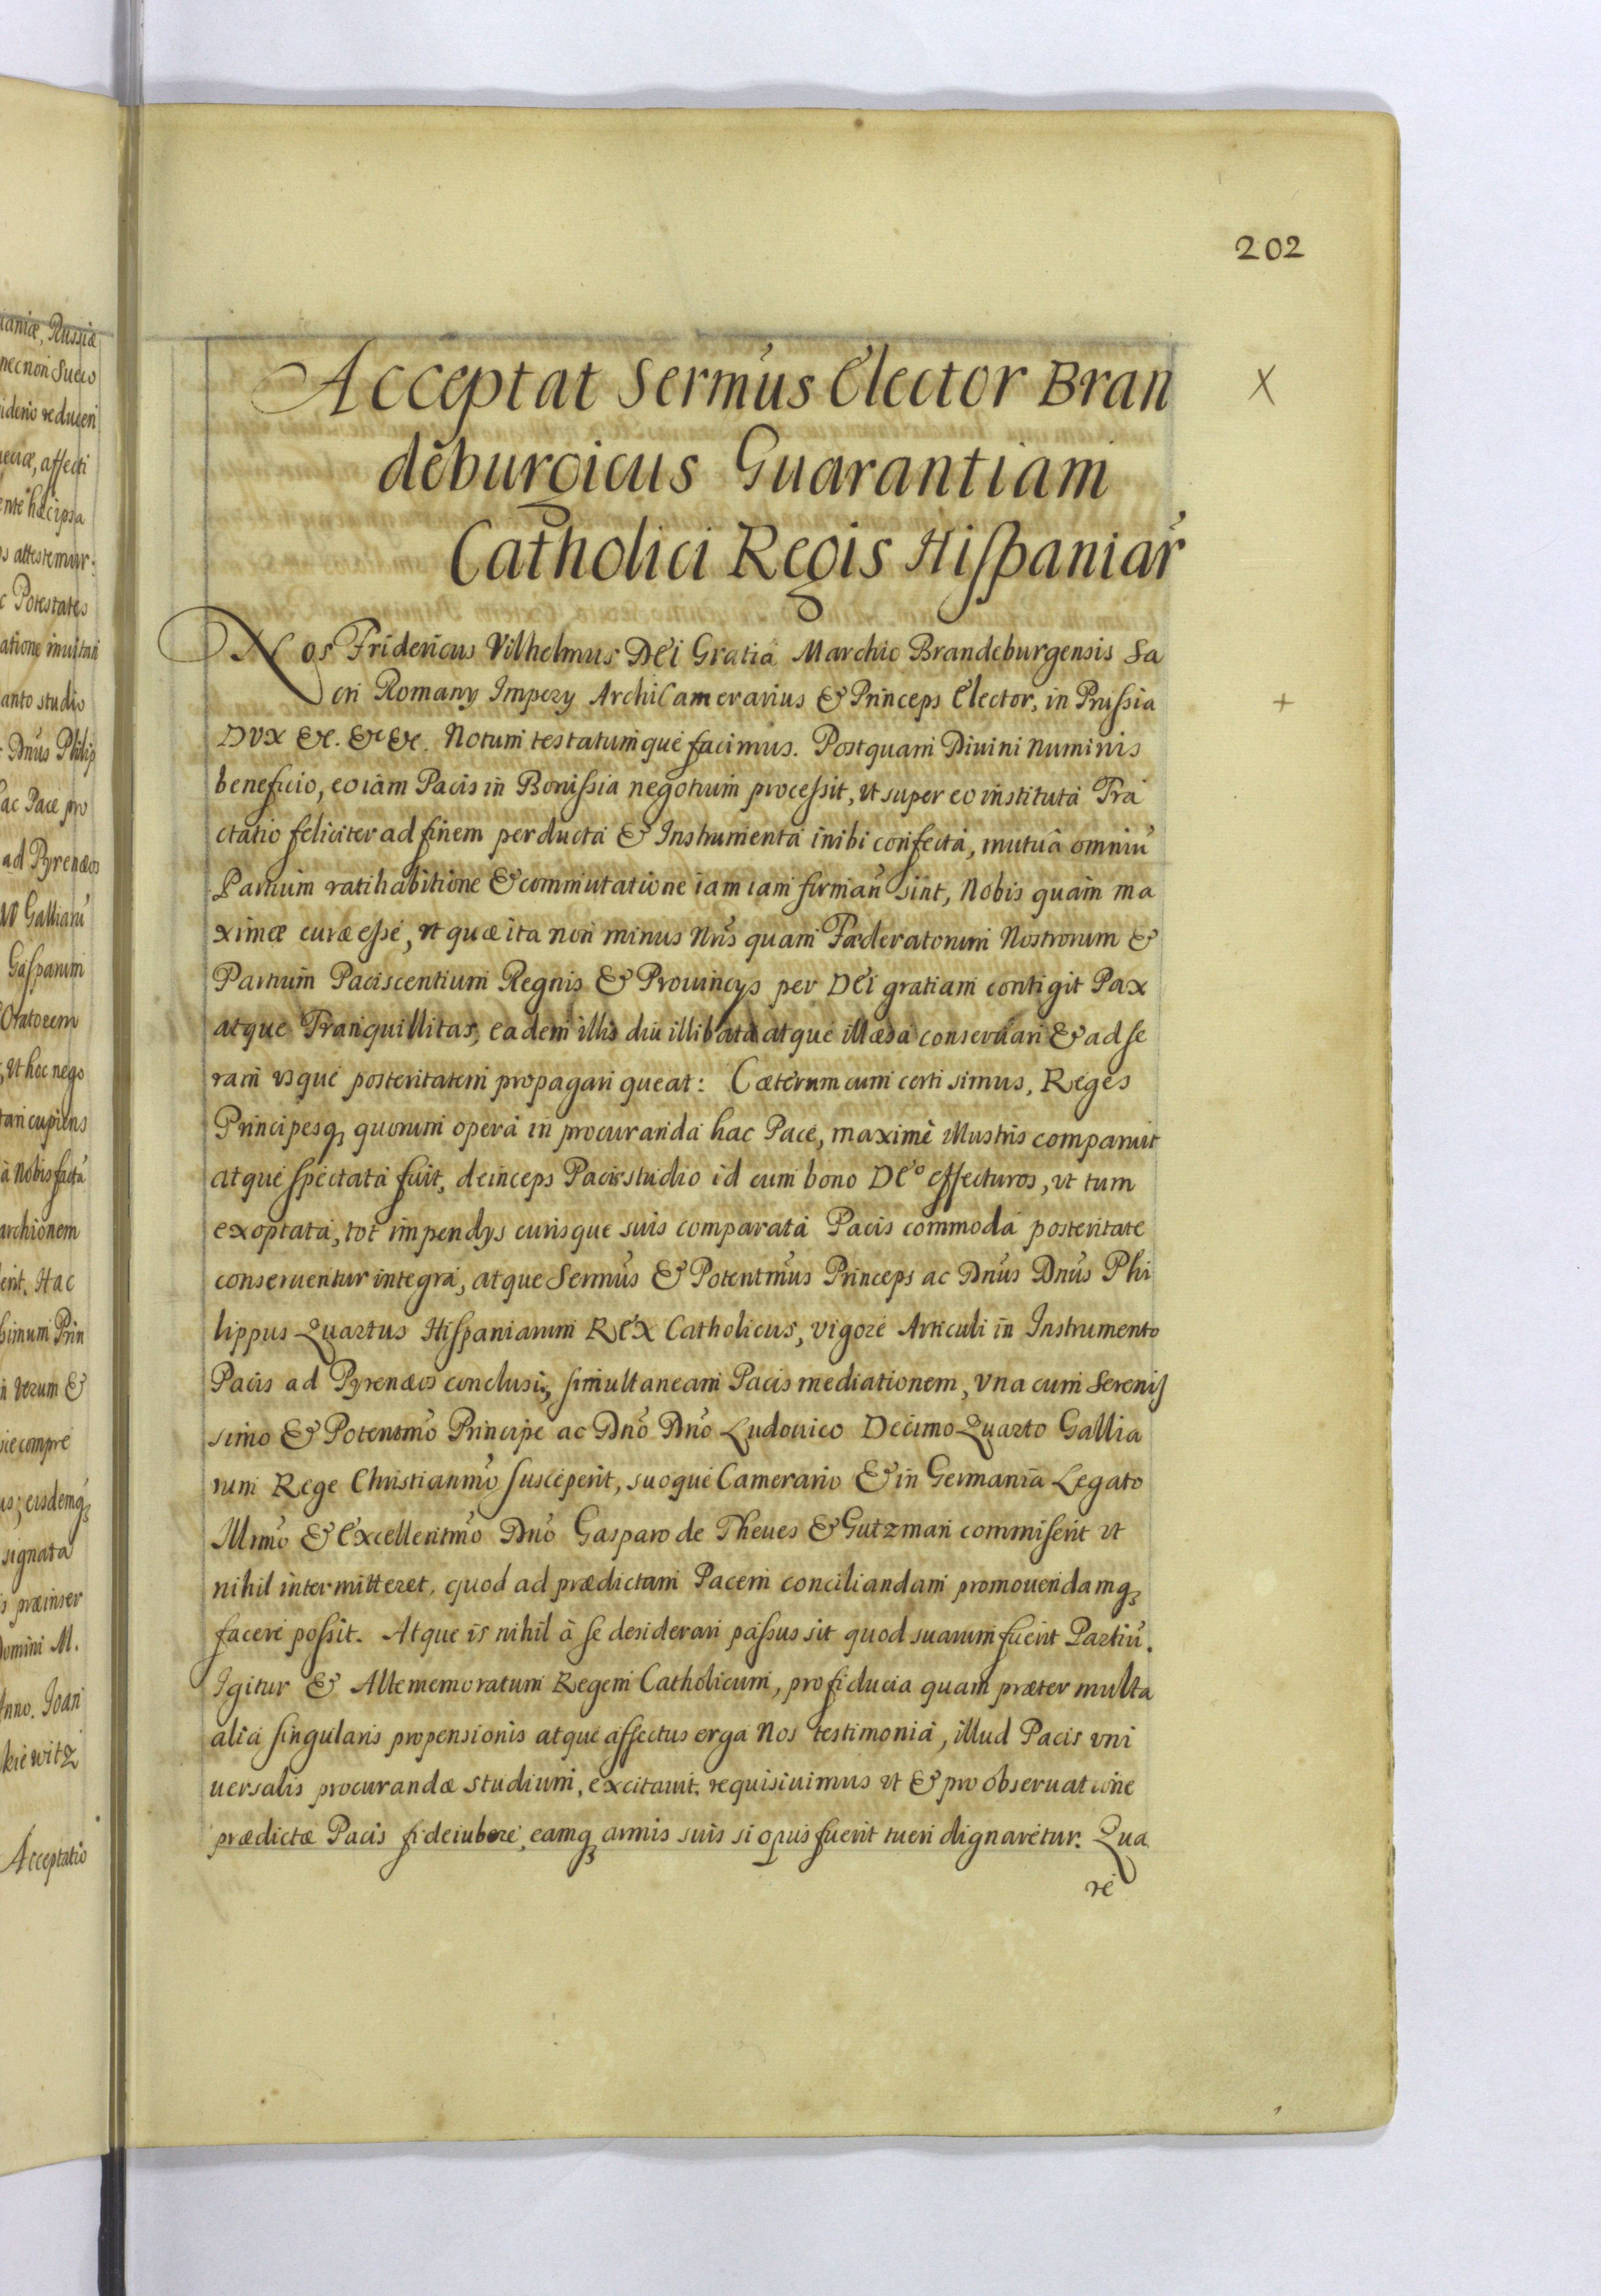 202
Acceptat Sermús Elector Bran
deburgicus Guarantiam
Catholici Regis Hispaniar̃
X
Nos Fridericus Vilhelmus DEI Gratiâ Marchio Brandeburgensis Sa
cri Romanÿ Imperÿ ArchiCamerarius & Princeps Elector, in Prussia
+
DVX &c. &c &c. Notum testatumque facimus. Postquam Diuini Numinis
beneficio, eo iam Pacis in Borussia negotium processit, vt super eo instituta Tra
ctatio feliciter ad finem perducta & Instrumenta inibi confecta, mutuâ omniũ
Partium ratihabitione & commutatione iam iam firmari sint, Nobis quam ma
ximæ curæ esse, vt quæ ita non minus Nr̃is quam Fæderatorum Nostrorum &
Partium Paciscentium Regnis & Prouincÿs per DEI gratiam contigit Pax
atque Tranquillitas, eadem illis diu illibata atque illæsa conseruari & ad se
ram vsque posteritatem propagari queat: Cæterum cum certi simus, Reges
Principesq3 quorum opera in procuranda hac Pace, maximè illustris comparuit
atque spectata fuit, deinceps Pacis studio id cum bono DEo effecturos, vt tum
exoptata, tot impendÿs curisque suis comparata Pacis commoda posteritate
conseruentur integra, atque Sermũs & Potentmũs Princeps ac Dnũs Dnũs Phi
lippus Quartus Hispaniarum REX Catholicus, vigore Articuli in Instrumento
Pacis ad Pyrenæos conclusi, simultaneam Pacis mediationem, vna cum Serenis
simo & Potentmõ Principe ac Dnõ Dnõ Ludouico Decimo Quarto Gallia
rum Rege Christianmõ susceperit, suoque Camerario & in Germania Legato
Illmõ & Excellentmõ Dnõ Gasparo de Theues & Gutzman commiserit vt
nihil intermitteret, quod ad prædictam Pacem conciliandam promouendamq3
facere possit. Atque is nihil à se desiderari passus sit quod suarum fuerit Partiũ.
Igitur & Altememoratum Regem Catholicum, pro fiducia quam præter multa
alia singularis propensionis atque affectus erga Nos testimonia, illud Pacis vni
uersalis procurandæ studium, excitauit, requisiuimus vt & pro obseruatione
prædictæ Pacis fideiubere, eamq3 armis suis si opus fuerit tueri dignaretur. Qua
re